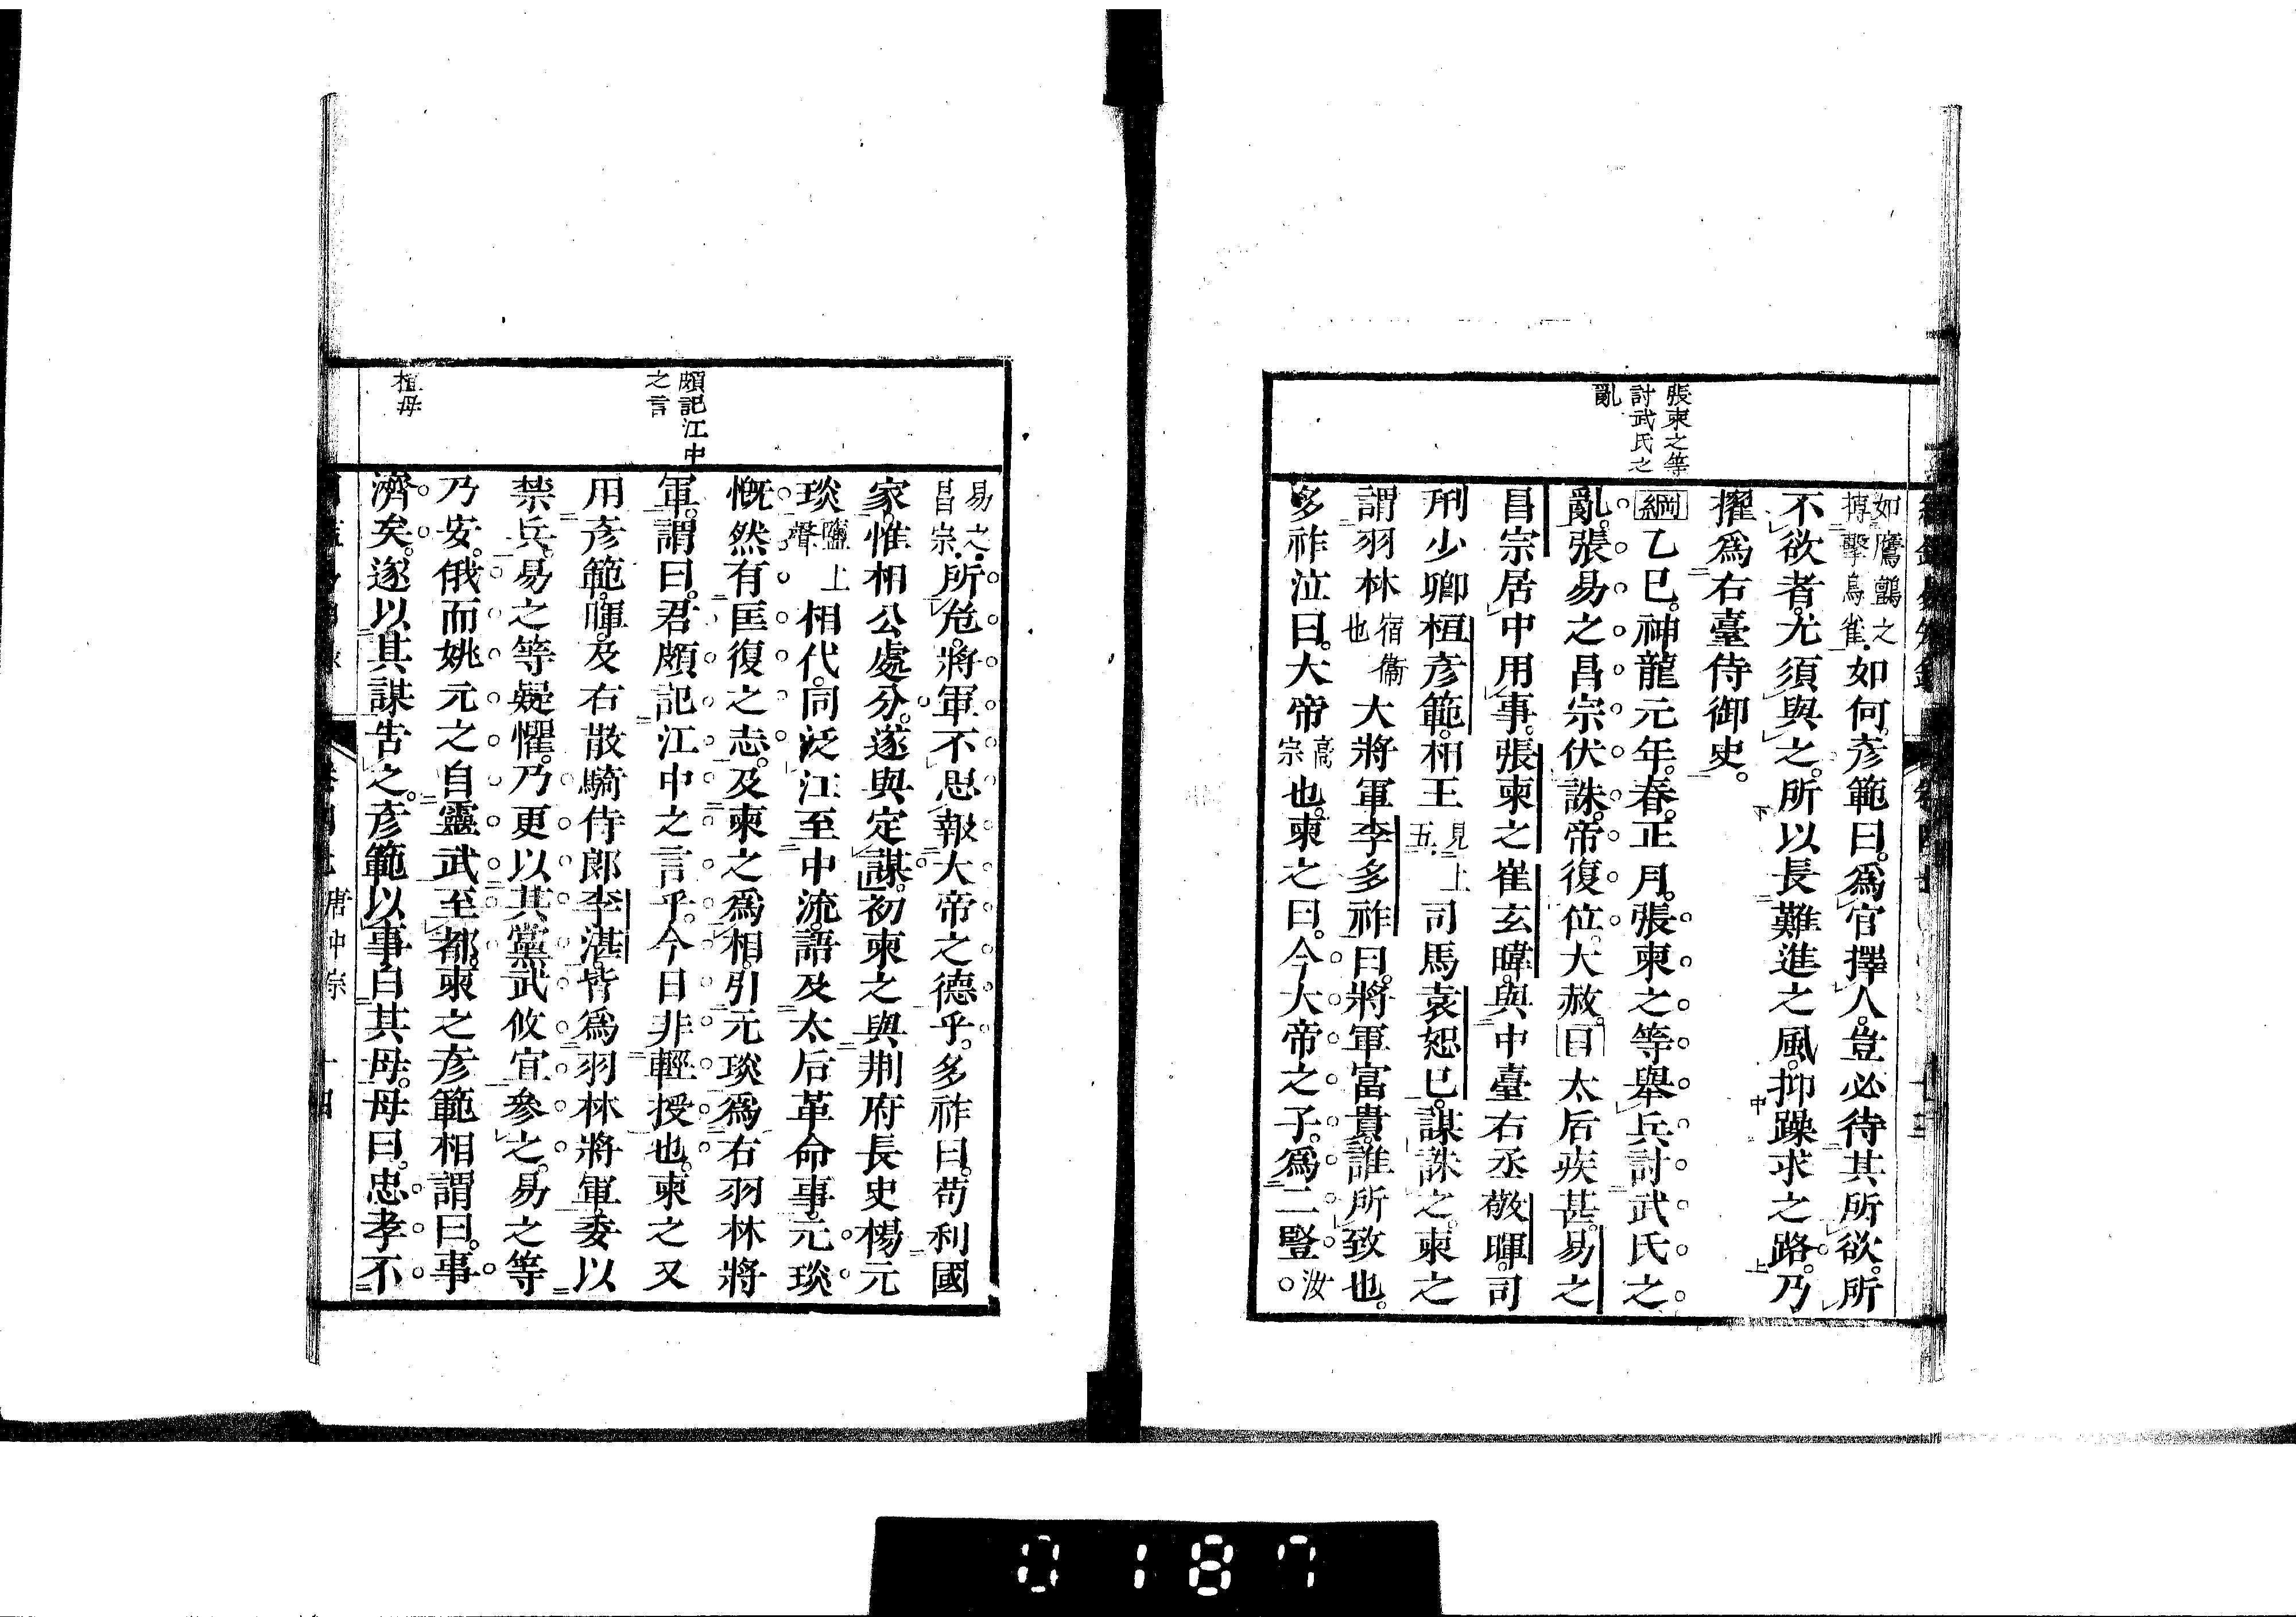 張柬之等
討武氏之
亂
如鷹鸇之
搏擊鳥雀如何彥範曰爲官擇人豈必待其所欲所
不欲者尤須與之所以長難進之風抑躁求之路乃
擢爲右臺侍御史
綱乙巳神龍元年春正月張柬之等舉兵討武氏之
亂張易之昌宗伏誅帝復位大赦目太后疾甚易之
昌宗居中用事張柬之崔玄暐與中臺右丞敬暉司
刑少卿桓彥範相王見上五司馬袁恕己謀誅之柬之
謂羽林宿衞也大將軍李多祚曰將軍富貴誰所致也
多祚泣曰大帝高宗也柬之曰今大帝之子爲二豎汝
頗記江中
之言
桓母
易之
昌宗所危將軍不思報大帝之德乎多祚曰苟利國
家惟相公處分遂與定謀初柬之與荆府長史楊元
琰鹽上聲相代同泛江至中流語及太后革命事元琰
慨然有匡復之志及柬之爲相引元琰爲右羽林將
軍謂曰君頗記江中之言乎今日非輕授也柬之又
用彥範暉及右散騎侍郎李湛皆爲羽林將軍委以
禁兵易之等疑懼乃更以其黨武攸宜參之易之等
乃安俄而姚元之自靈武至都柬之彥範相謂曰事
濟矣遂以其謀告之彥範以事白其母母曰忠孝不
唐中宗
十四
0187